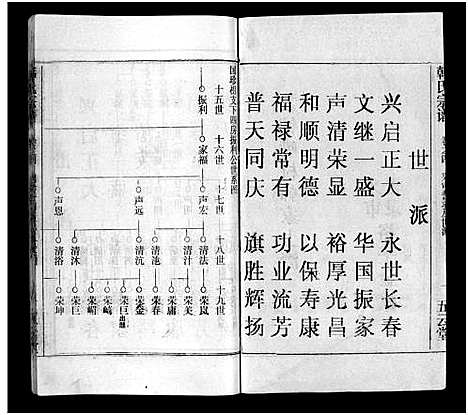 韩氏宗谱
世派
兴启正大 永世长春
文继一盛 华国振家
声清荣显 裕厚光昌
和顺明德 以保寿康
福禄常有 功业流芳
普天同庆 旗胜辉扬
国珍祖支下四房振利公世系图
十五世 十六世 十七世 十八世 十九世
振利
家福
声宏 声远 声恩
清法 清汁 清池 清沆 清沐 清浴
荣岚 荣庸 荣美 荣春 荣銮 荣巨出继 荣崎 荣嵋 荣巨 荣坤